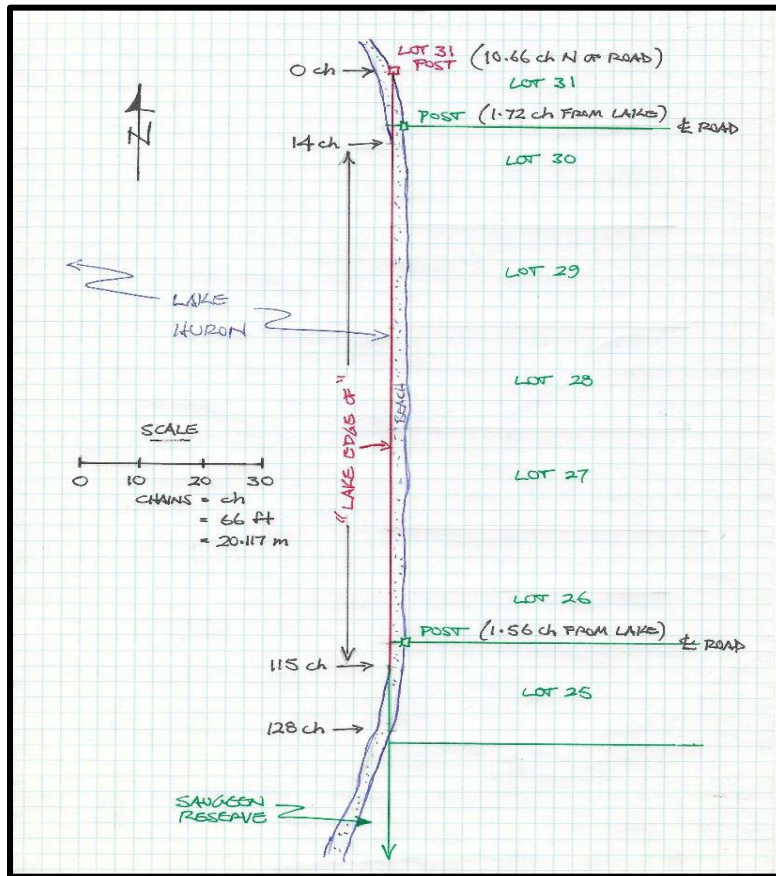 LOT 31
POST (10.66 ch N OF ROAD)
0 ch
LOT 31
N
POST (1.72 ch FROM LAKE) ℄ ROAD
14 ch
LOT 30
LOT 29
LAKE
HURON
LOT 28
"LAKE EDGE OF"
BEACH
SCALE
0 10 20 30
CHAINS = ch
= 66 ft
= 20.117 m
LOT 27
LOT 26
POST (1.56 ch FROM LAKE) ℄ ROAD
115 ch
LOT 25
128 ch
SAUGEEN
RESERVE